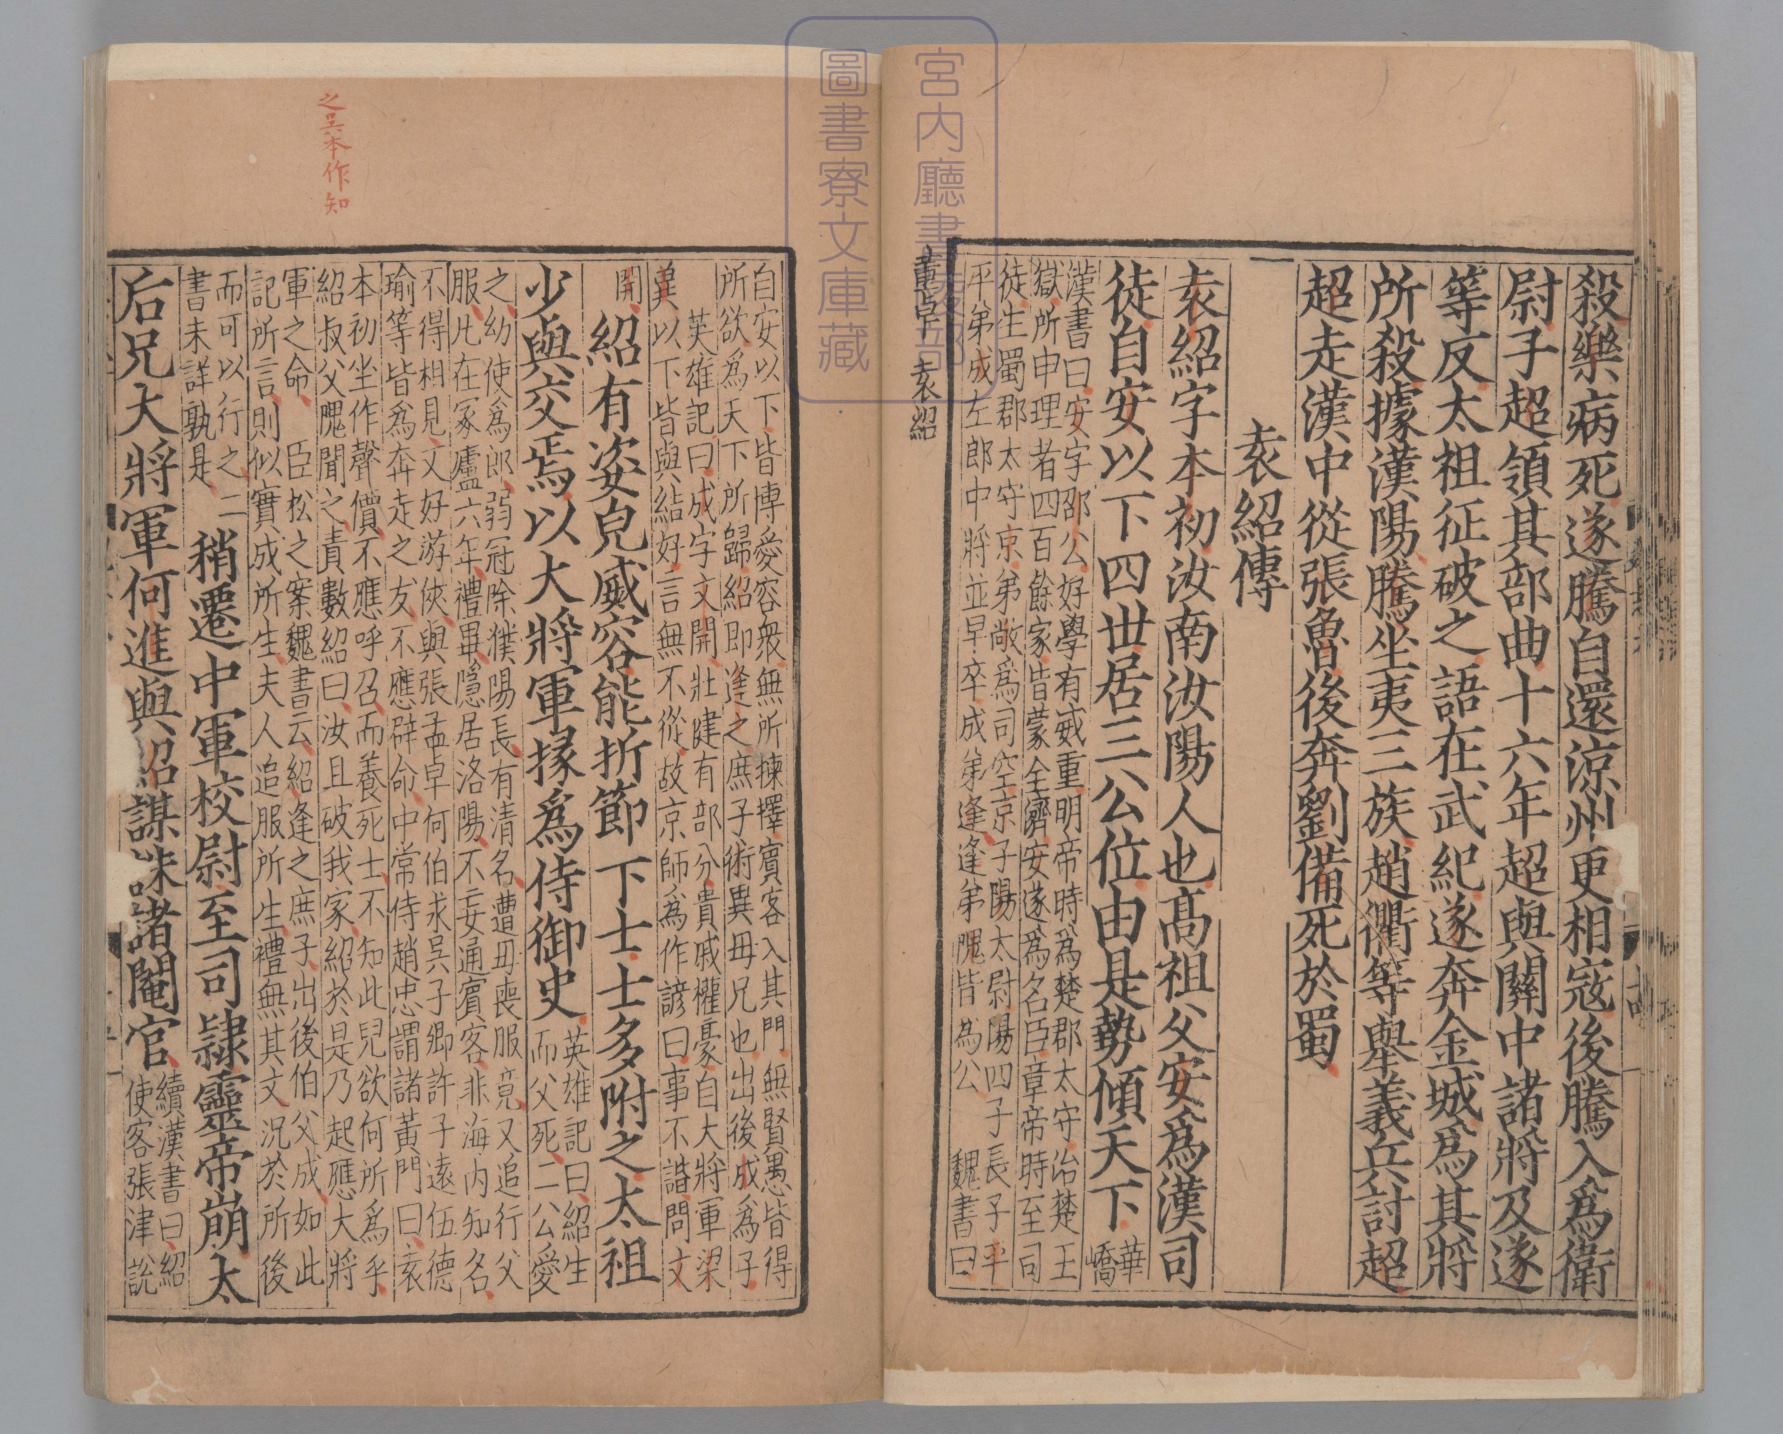 宮内廳書陵部
圖書寮文庫藏
殺樂病死遂騰自還涼州更相寇後騰入爲衛
尉子超領其部曲十六年超與關中諸將及遂
等反太祖征破之語在武紀遂奔金城爲其將
所殺據漢陽騰坐夷三族趙衢等舉義兵討超
超走漢中從張魯後奔劉備死於蜀
袁紹傳
袁紹字本初汝南汝陽人也高祖父安爲漢司
徒自安以下四世居三公位由是勢傾天下華
嶠
漢書曰安字邵公好學有威重明帝時爲楚郡太守治楚王
獄所申理者四百餘家皆蒙全濟安遂爲名臣章帝時至司
徒生蜀郡太守京弟敞爲司空京子陽太尉陽四子長子平
平弟成左郎中將並早卒成弟逢逢弟隗皆為公 魏書曰
董卓 袁紹
之吳本作知
自安以下皆博愛容衆無所揀擇賓客入其門無賢愚皆得
所欲爲天下所歸紹即逢之庶子術異母兄也出後成爲子
英雄記曰成字文開壯健有部分貴戚權豪自大將軍梁
冀以下皆與結好言無不從故京師爲作諺曰事不諧問文
開 紹有姿皃威容能折節下士士多附之太祖
少與交焉以大將軍掾爲侍御史英雄記曰紹生
而父死二公愛
之幼使爲郎弱冠除濮陽長有清名遭母喪服竟又追行父
服凡在冢廬六年禮畢隱居洛陽不妄通賓客非海内知名
不得相見又好游俠與張孟卓何伯求吳子卿許子遠伍德
瑜等皆爲奔走之友不應辟命中常侍趙忠謂諸黃門曰袁
本初坐作聲價不應呼召而養死士不知此兒欲何所爲乎
紹叔父隗聞之責數紹曰汝且破我家紹於是乃起應大將
軍之命 臣松之案魏書云紹逢之庶子出後伯父成如此
記所言則似實成所生夫人追服所生禮無其文況於所後
而可以行之二
書未詳孰是 稍遷中軍校尉至司隸靈帝崩太
后兄大將軍何進與紹謀誅諸閹官續漢書曰紹
使客張津說